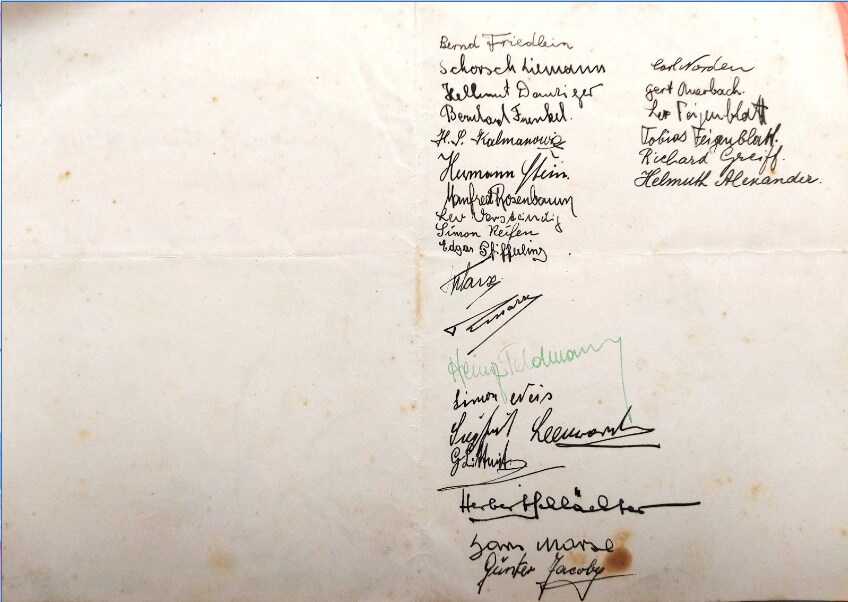 Bernd Friedlein
Schorsch Liemann
Hellmut Danziger
Bernhard Frenkel.
H. S. Kalmanowiz
Hermann Stein.
Manfred Rosenbaum
Leo Verständig
Simon Reifen
Edgar Pfifferling
Marx
Heinz Feldmann
Simon Weis
Siegfried Leeuwarden
Herbert Schlächter
Hans Marx
Günter Jacoby
Carl Norden
Gert Auerbach.
Leo Feigenblatt
Tobias Feigenblatt.
Richard Greiff.
Helmuth Alexander.